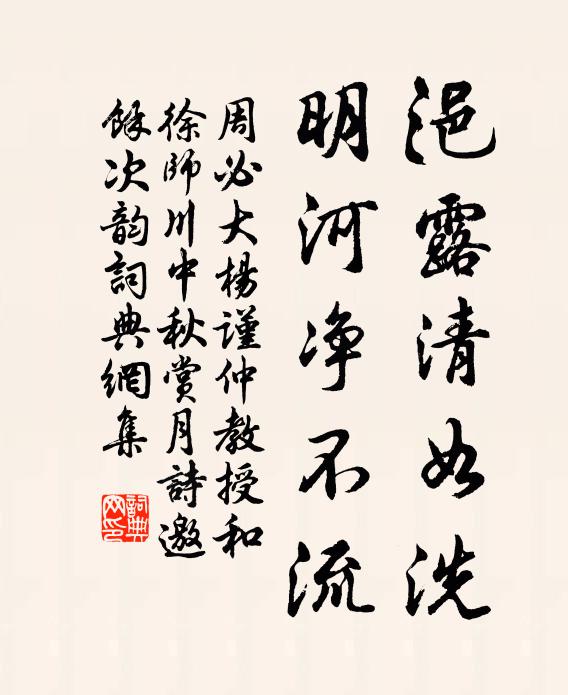 浥露清如洗
明河净不流
周必大楊謹仲教授和
徐師川中秋賞月詩邀
余次韵詞典網集
詞典网印